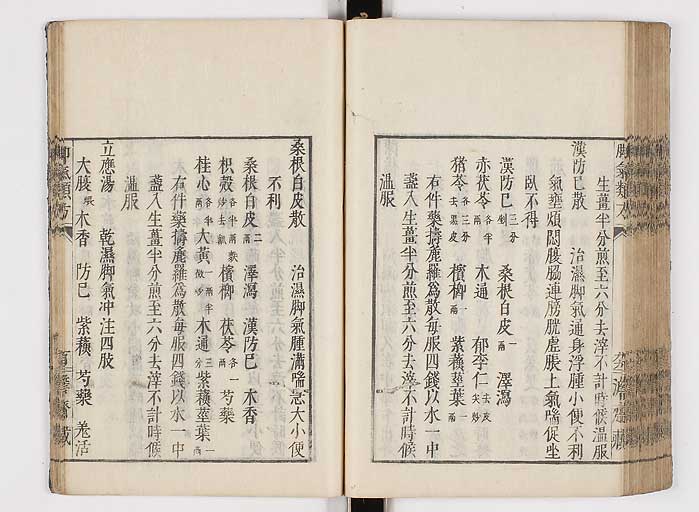 生薑半分煎至六分去滓不計時候温服
漢防巳散　治濕脚氣通身浮腫小便不利
氣壅煩悶腹脇連膀胱虛脹上氣喘促坐
臥不得
漢防巳三分 桑根白皮一兩 澤瀉
赤茯苓各半兩 木通 郁李仁去皮尖炒
猪苓各三分去黑皮 檳榔一兩 紫蘇莖葉一兩
右件藥擣麄羅爲散每服四錢以水一中
盞入生薑半分煎至六分去滓不計時候
温服
桑根白皮散　治濕脚氣腫滿喘急大小便
不利
桑根白皮二兩 澤瀉 漢防巳 木香
枳殼各半兩麩炒去瓤 檳榔 茯苓各一兩 芍藥
桂心各半兩 大黃一兩半微炒 木通三分 紫蘇莖葉一兩
右件藥擣麄羅爲散每服四錢以水一中
盞入生薑半分煎至六分去滓不計時候
温服
立應湯　乾濕脚氣冲注四肢
大腹 木香 防巳 紫蘇 芍藥 羗活
脚氣類方